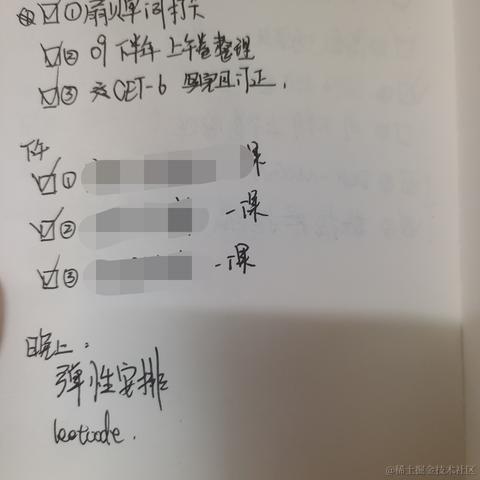 ☑① 单词打卡
☑② 09下半年上午卷整理
☑③ CET-6 写完且订正.
下午
☑① 课
☑② 一课
☑③ 一课
晚上:
弹性安排
leetcode.
@稀土掘金技术社区